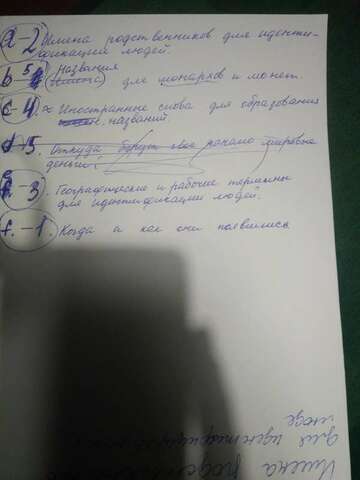 a-2 Имена родственников для иденти-
фикации людей.
b-5 Названия
для монархов и монет.
c-4. Иностранные слова для образования
названий.
d-5. Откуда берут свое начало мировые
деньги.
e-3. Географические и рабочие термины
для идентификации людей.
f.-1. Когда и как они появились.
Имена
для иден
люде